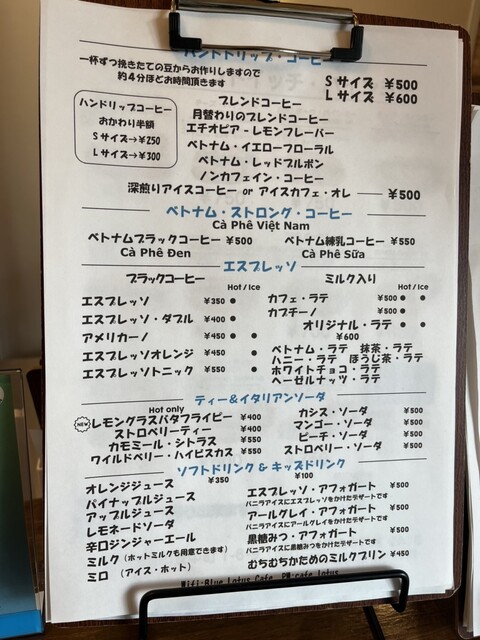 ハンドドリップ・コーヒー
一杯ずつ挽きたての豆からお作りしますので
約４分ほどお時間頂きます
Sサイズ ¥500
Lサイズ ¥600
ハンドリップコーヒー
おかわり半額
Sサイズ→¥250
Lサイズ→¥300
ブレンドコーヒー
月替わりのブレンドコーヒー
エチオピア - レモンフレーバー
ベトナム・イエローフローラル
ベトナム・レッドブルボン
ノンカフェイン・コーヒー
深煎りアイスコーヒー or アイスカフェ・オレ ¥500
ベトナム・ストロング・コーヒー
Cà Phê Việt Nam
ベトナムブラックコーヒー ¥500
Cà Phê Đen
ベトナム練乳コーヒー ¥550
Cà Phê Sữa
エスプレッソ
ブラックコーヒー
Hot / Ice
エスプレッソ ¥350 ●
エスプレッソ・ダブル ¥400 ●
アメリカーノ ¥450 ● ●
エスプレッソオレンジ ¥450 ●
エスプレッソトニック ¥550 ●
ミルク入り
Hot / Ice
カフェ・ラテ ¥500 ● ●
カプチーノ ¥500 ●
オリジナル・ラテ ● ●
¥600
ベトナム・ラテ 抹茶・ラテ
ハニー・ラテ ほうじ茶・ラテ
ホワイトチョコ・ラテ
ヘーゼルナッツ・ラテ
ティー&イタリアンソーダ
Hot only
NEW レモングラスバタフライピー ¥400
ストロベリーティー ¥400
カモミール・シトラス ¥550
ワイルドベリー・ハイビスカス ¥550
カシス・ソーダ ¥500
マンゴー・ソーダ ¥500
ピーチ・ソーダ ¥500
ストロベリー・ソーダ ¥500
ソフトドリンク & キッズドリンク
¥350 ¥100
オレンジジュース
パイナップルジュース
アップルジュース
レモネードソーダ
辛口ジンジャーエール
ミルク（ホットミルクも用意できます）
ミロ （アイス・ホット）
エスプレッソ・アフォガート ¥500
バニラアイスにエスプレッソをかけたデザートです
アールグレイ・アフォガート ¥500
バニラアイスにアールグレイをかけたデザートです
黒糖みつ・アフォガート ¥500
バニラアイスに黒糖みつをかけたデザートです
むちむちかためのミルクプリン ¥450
Wifi:Blue Lotus Cafe PW:cafe lotus